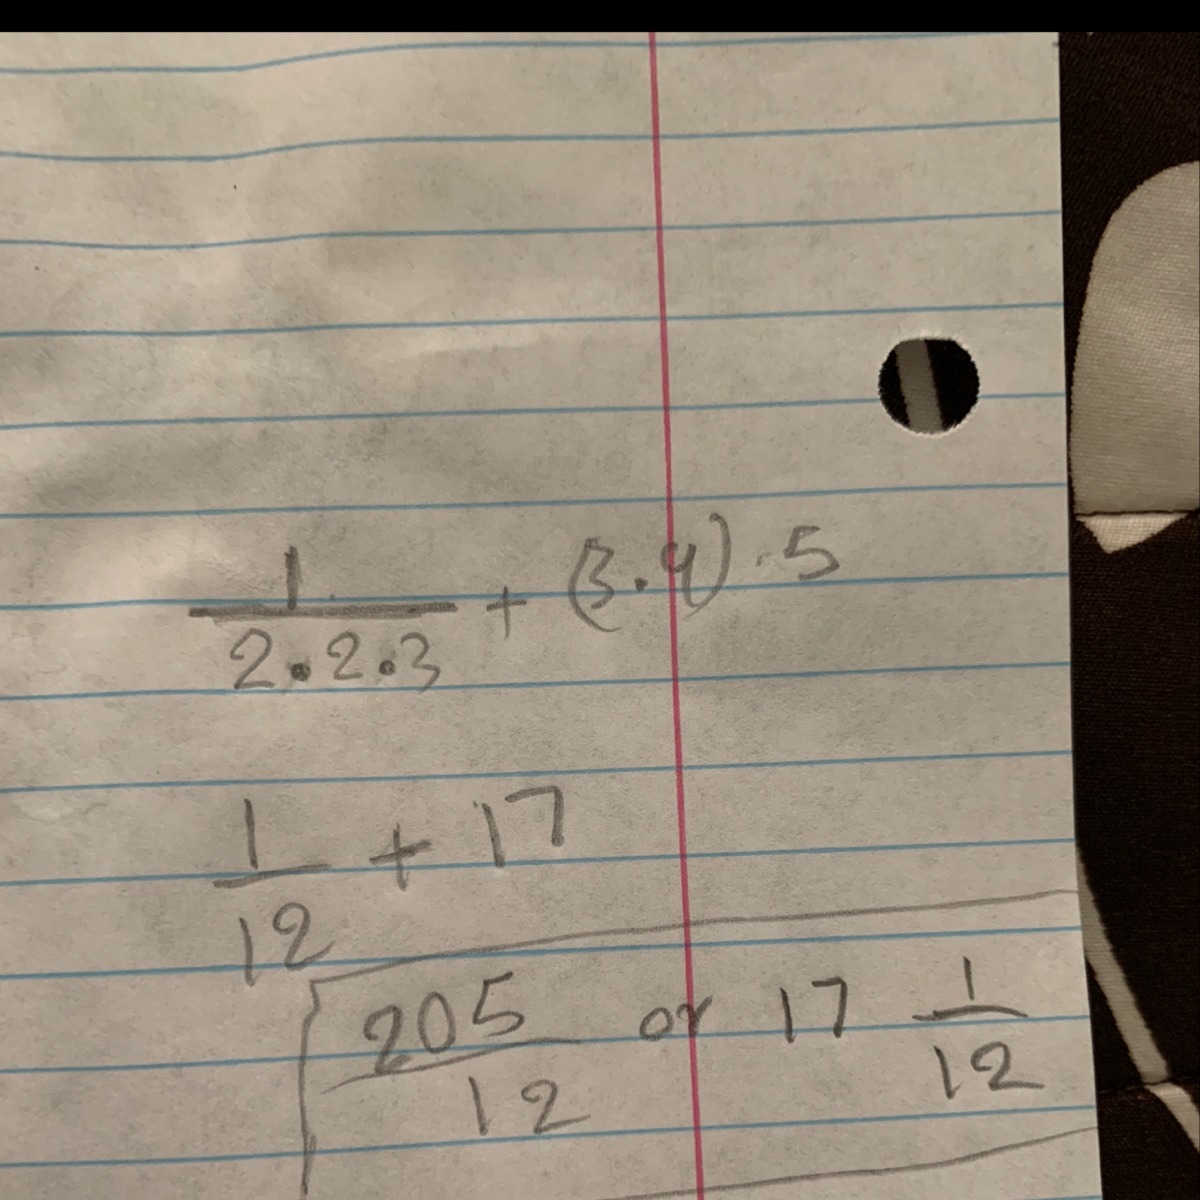 1/(2·2·3) + (3·4)·5
1/12 + 17
205/12 or 17 1/12